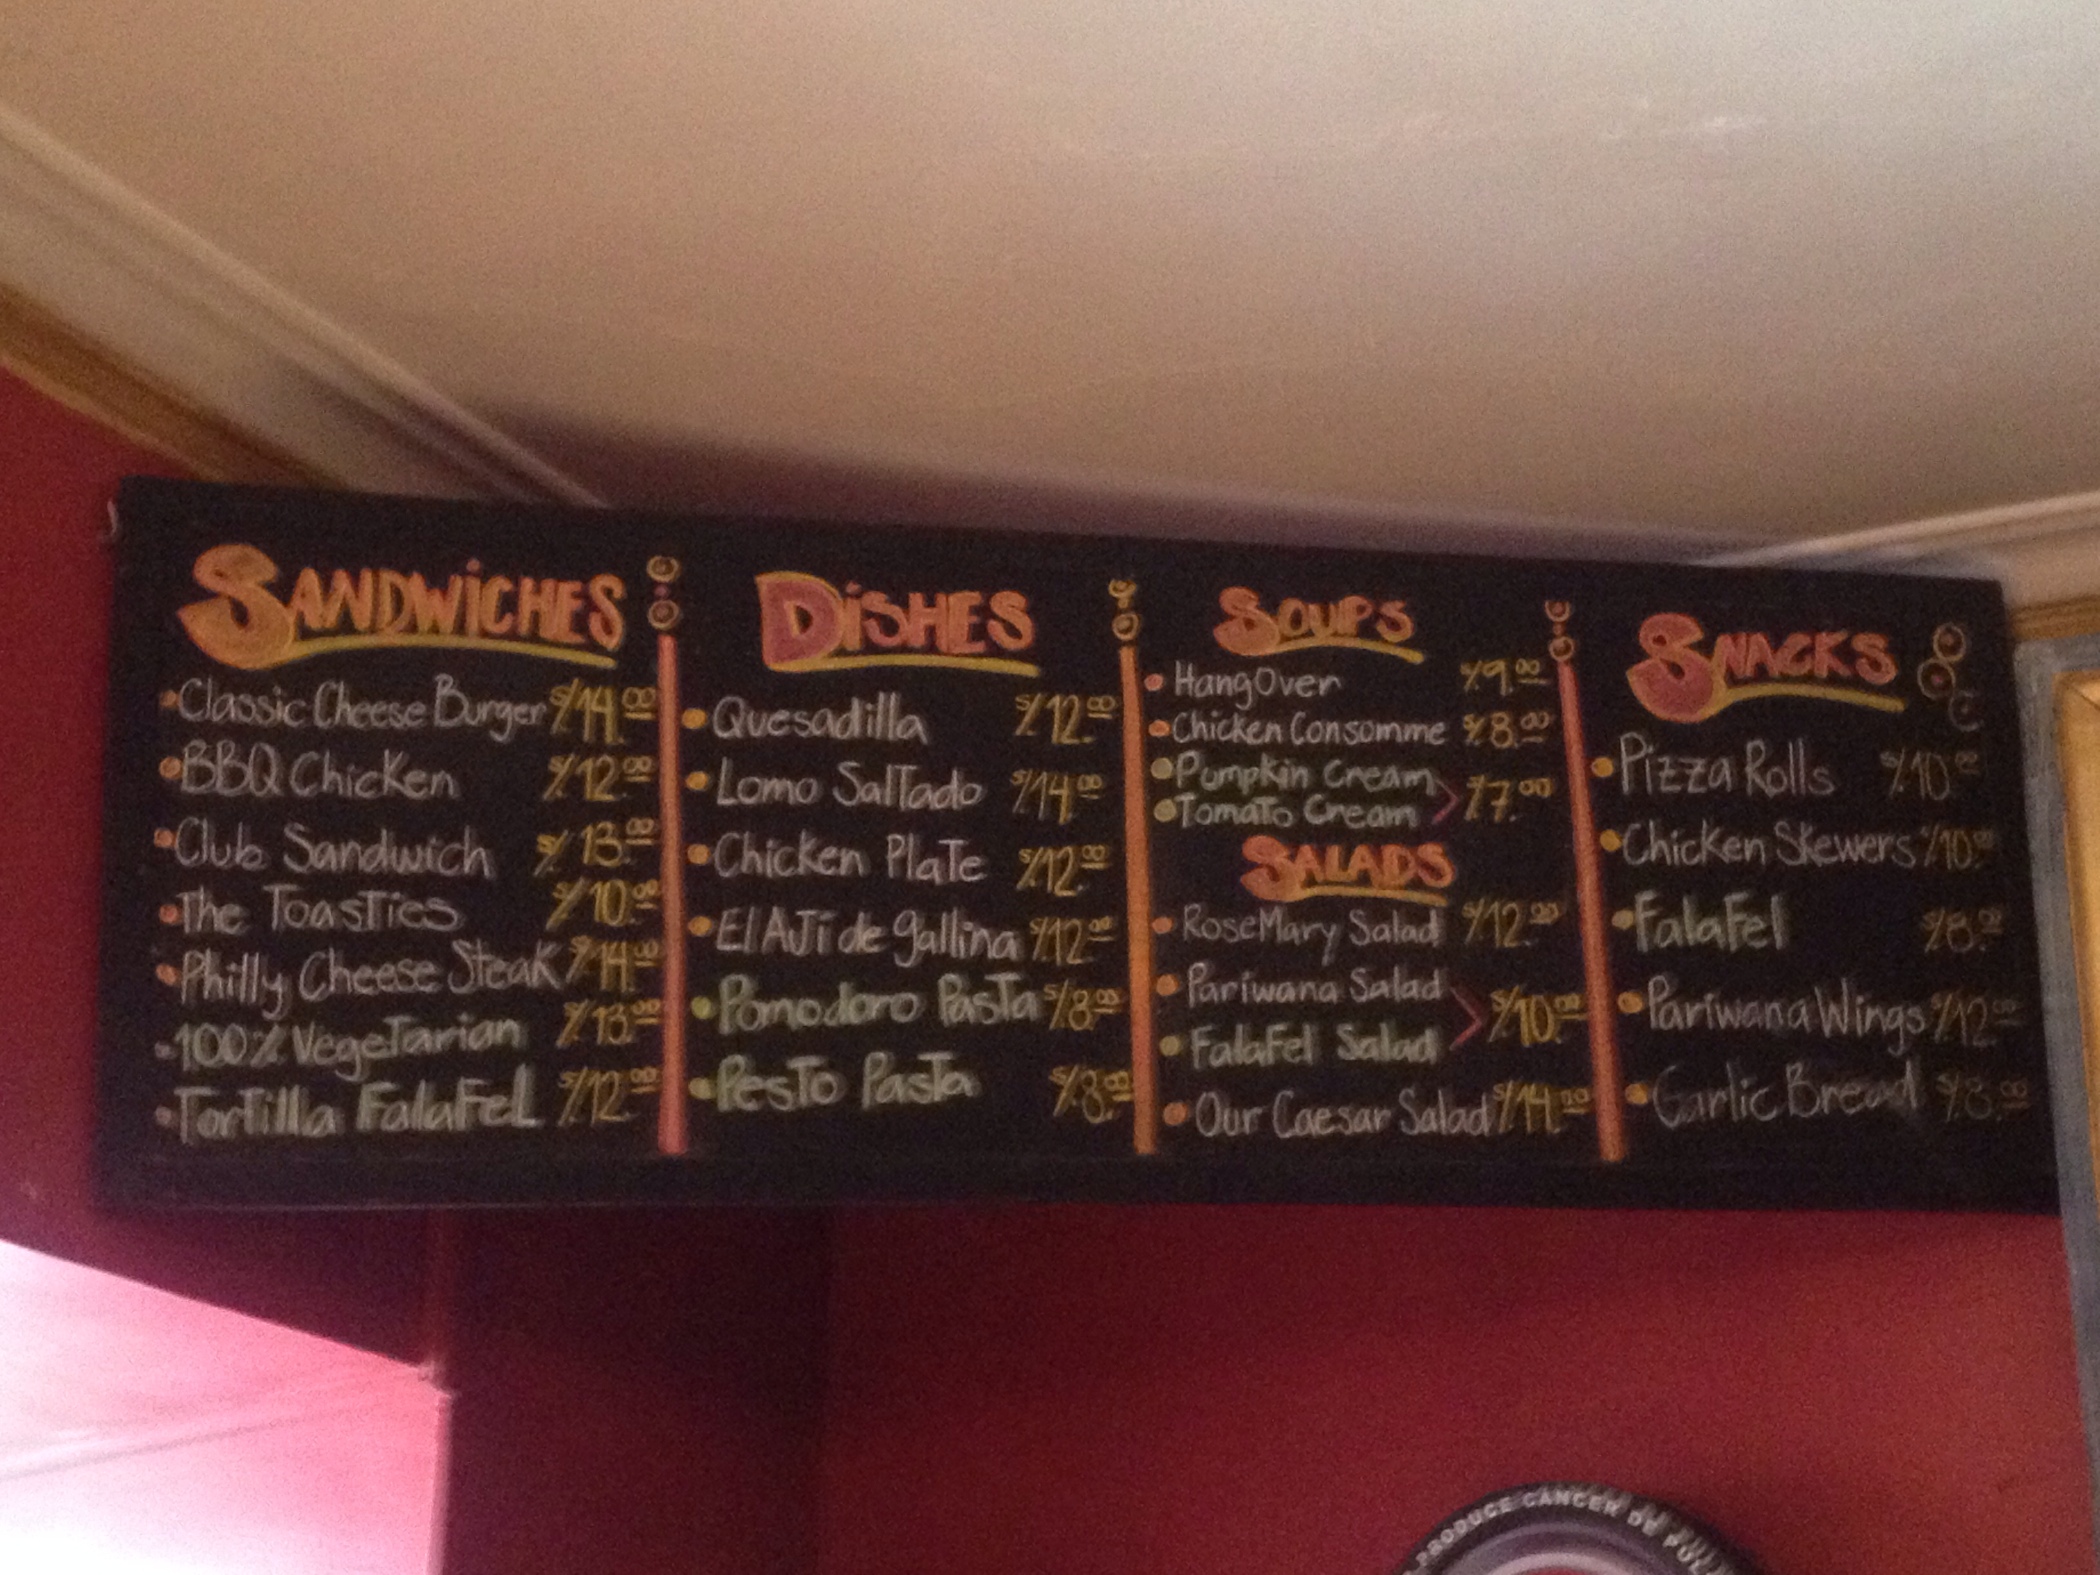 SANDWICHES
Classic Cheese Burger S/14.00
BBQ Chicken S/12.00
Club Sandwich S/. 13.00
The Toasties S/10.00
Philly Cheese Steak S/14.00
100% Vegetarian S/13.00
Tortilla Falafel S/12.00
DiSHES
Quesadilla S/12.00
Lomo Saltado S/14.00
Chicken Plate S/12.00
El Aji de gallina S/12.00
Pomodoro Pasta S/8.00
Pesto Pasta S/.8.00
SOUPS
HangOver S/.9.00
Chicken Consomme S/.8.00
Pumpkin Cream
Tomato Cream S/7.00
SALADS
RoseMary Salad S/12.00
Pariwana Salad
Falafel Salad S/10.00
Our Caesar Salad S/14.00
SNACKS
Pizza Rolls S/.10.00
Chicken Skewers S/10.00
Falafel S/8.00
Pariwana Wings S/12.00
Garlic Bread S/8.00
PRODUCE CÁNCER DE